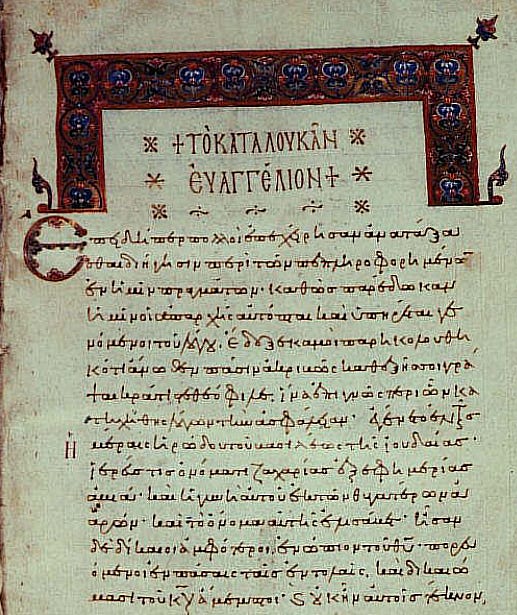 + ΤὸΚΑΤΑΛΟΥΚᾶΝ
ἐΥΑΓΓέΛΙΟΝ +
Ἐπειδήπερ πολλοὶ ἐπεχείρησαν ἀνατάξα
σθαι διήγησιν περὶ τῶν πεπληροφορημένω
ἐν ἡμῖν πραγμάτων· καθὼς παρέδωκαν
ἡμῖν οἱ ἀπαρχῆς αὐτόπται καὶ ὑπηρέται γε
νόμενοι τοῦ λόγου, ἔδοξε κἀμοὶ παρηκολουθη
κότι ἄνωθεν πᾶσιν ἀκριβῶς καθεξῆς σοι γρά
ψαι κράτιστε θεόφιλε, ἵνα ἐπιγνῷς περὶ ὧν κα
τηχήθης λόγων τὴν ἀσφάλειαν· ἐγένετο ἐν ταῖς
ἡμέραις ἡρώδου τοῦ βασιλέως τῆς ἰουδαίας·
ἱερεύς τις ὀνόματι ζαχαρίας ἐξ ἐφημερίας
ἀβιά· καὶ ἡ γυνὴ αὐτοῦ ἐκ τῶν θυγατέρων ἀ
αρών· καὶ τὸ ὄνομα αὐτῆς ἐλισάβετ· ἦσαν
δὲ δίκαιοι ἀμφότεροι ἐνώπιον τοῦ θῦ· πορευ
όμενοι ἐν πάσαις ταῖς ἐντολαῖς, καὶ δικαιώ
μασι τοῦ κυ ἄμεμπτοι· καὶ οὐκ ἦν αὐτοῖς τέκνον,